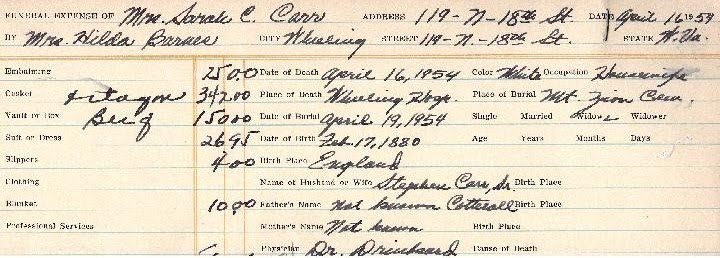 FUNERAL EXPENSE OF Mrs. Sarah C. Carr ADDRESS 119-N-18th St. DATE April 16 1954
BY Mrs. Hilda Barnes CITY Wheeling STREET 119-N.-18th St. STATE W.Va.
Embalming 25.00 Date of Death April 16, 1954 Color White Occupation Housewife
Casket Octagon 347.00 Place of Death Wheeling Hosp. Place of Burial Mt. Zion Cem.
Vault or Box 150.00 Date of Burial April 19, 1954 Single Married Widow Widower
Suit or Dress 26.95 Date of Birth Feb. 17, 1880 Age Years Months Days
Slippers 4.00 Birth Place England
Clothing Name of Husband or Wife Stephen Carr, Sr. Birth Place
Blanket 10.00 Father's Name Not known Cotterall Birth Place
Professional Services Mother's Name Not known Birth Place
Physician Dr. Drinkard Cause of Death